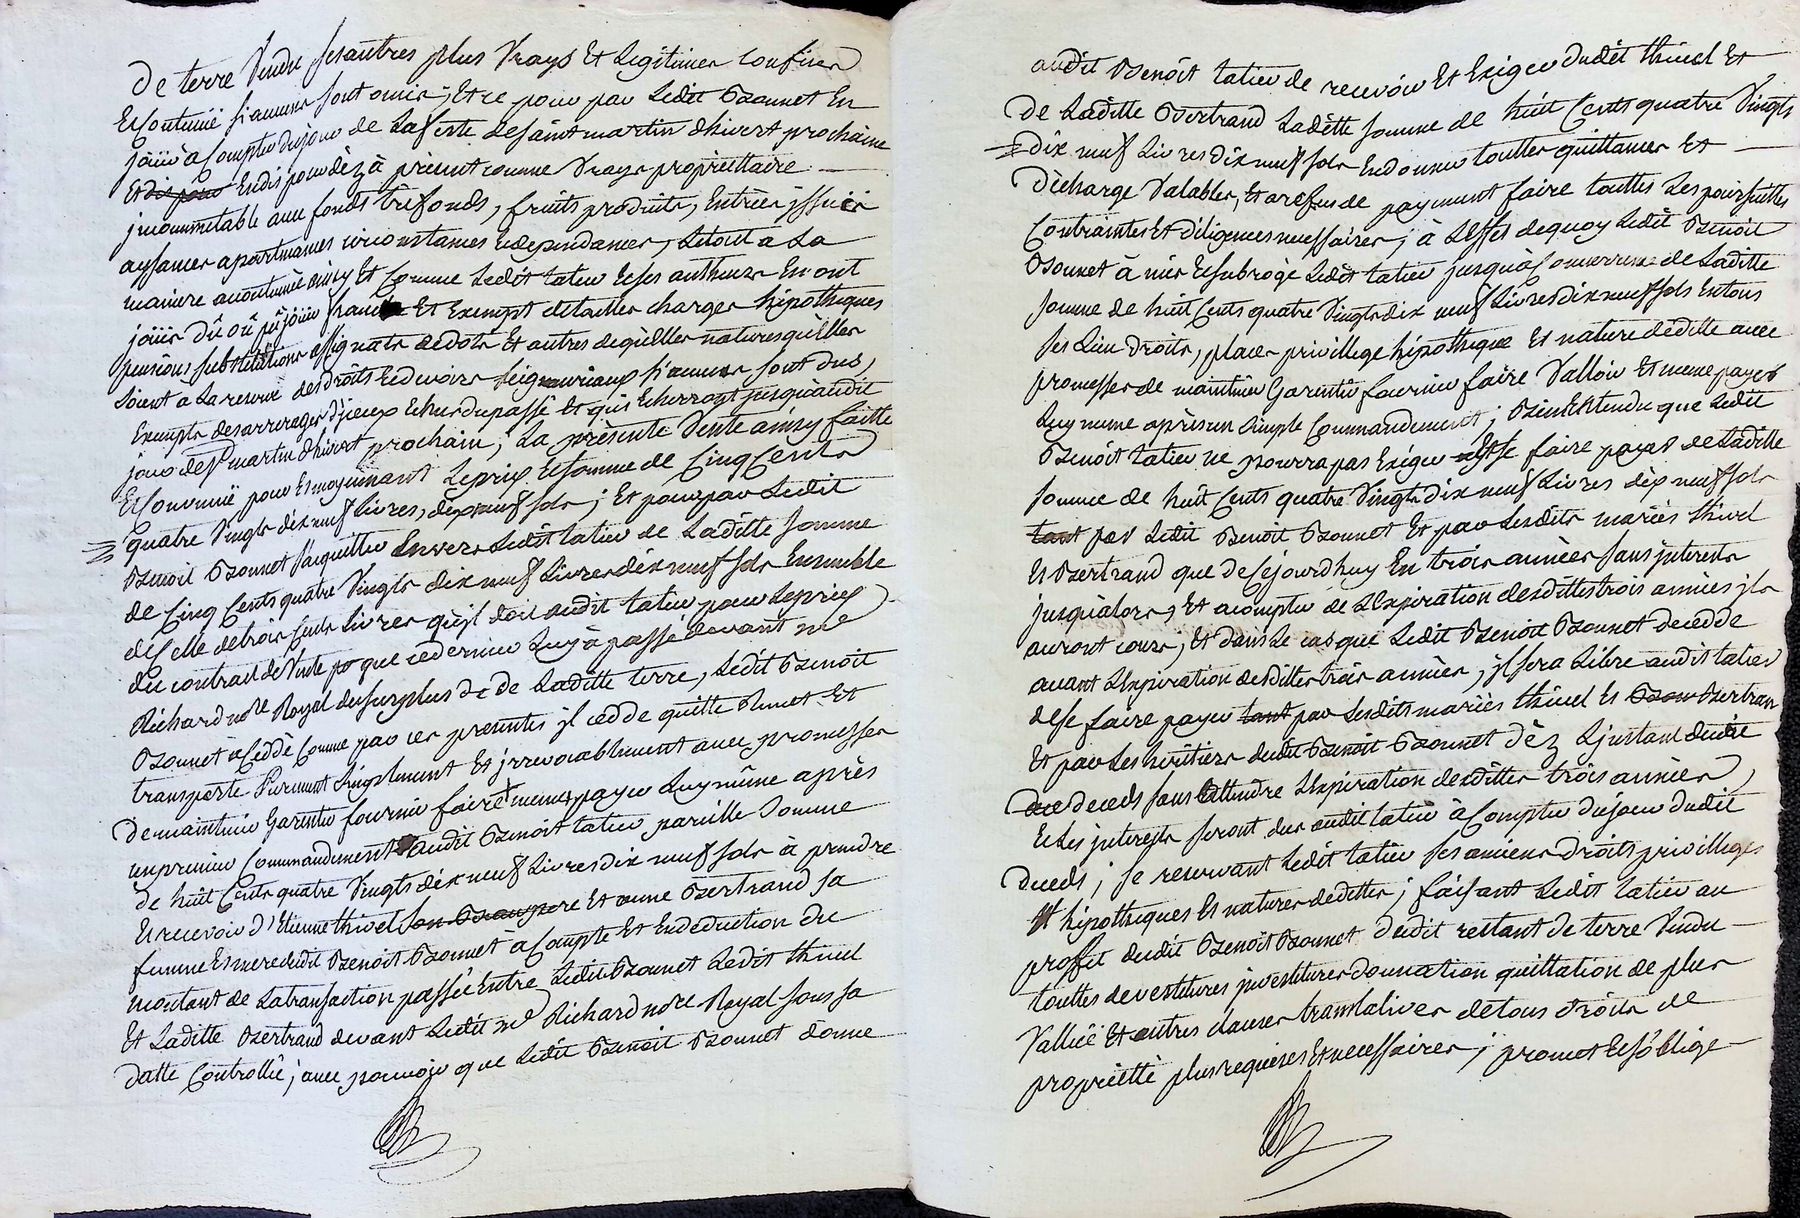 de terre Vendu ses autres plus Vrays Et Legitimes Confins
Et Contenüe si aucuns sont omis; Et ce pour par Ledit Bonnet En
joüir à Compter du jour de La feste de saint martin d'hivert prochaine
Et dis pour En dis pour dèz à prèsent comme Vrays propriettaire
jncommutable aux fonds trefonds, fruits produits, Entrèes jssuës
aysances apartenances circonstances Et dependances, Le tout a La
maniere accoutumée ainsy Et Comme Ledit tatieu Et ses autheurs En ont
joüis dû où pû joüir franche Et Exempt de tailles charges hipotheques
pensions substitutions assignats de dots Et autres de quèlles natures qu'elles
soient a La reserve des droits Et devoirs seigneuriaux si aucuns sont dus,
Exempts des arrerages d'jceux Echus du passè Et quis Echerront jusqu'audit
jour de st martin d'hivert prochain; La prèsente Vente ainsy faitte
Et Convenüe pour Et moyennant Le prix Et somme de Cinq Cents
quatre Vingts dix neuf Livres, dix neuf sols; Et pour par Ledit
Benoit Bonnet s'acquitter Envers Ledit tatieu de Laditte somme
de Cinq Cents quatre Vingts dix neuf Livres dix neuf sols Ensemble
de Celle de trois Cents Livres qu'jl doit audit tatieu pour Le prix
du contrat de Vente po que ce dernier Luy à passé devant me
Richard nore Royal du surplus de de Laditte terre, Ledit Benoit
Bonnet à Ceddè Comme par ces presentes jl cedde quitte Remet Et
transporte Purement simplement Et jrrevocablement avec promesses
de maintenir Garentir fournir faire meme payer Luy même après
un premier Commandement audit Benoit tatieu pareille somme
de huit Cents quatre Vingts dix neuf Livres dix neuf sols à prendre
Et recevoir d'Etienne thivel son Beau pere Et anne Bertrand sa
femme Et mere dudit Benoit Bonnet à Compte Et En deduction du
montant de La transaction passée Entre Ledit Bonnet Ledit thivel
Et Laditte Bertrand devant Ledit me Richard nore Royal sous sa
datte Controllée; avec pouvoir que Ledit Benoit Bonnet donne
audit Benoit tatieu de recevoir Et Exiger dudit thivel Et
de Laditte Bertrand Laditte somme de huit Cents quatre Vingts
dix neuf Livres dix neuf sols En donner touttes quittances Et
dècharge Valables, Et a refus de payement faire touttes Les poursuittes
Contraintes Et diligences necessaires; à L'effet de quoy Ledit Benoit
Bonnet à mis Et subrogè Ledit tatieu jusqu'à Concurrence de Laditte
somme de huit Cents quatre Vingts dix neuf Livres dix neuf sols En tous
ses Lieu droits, places privillege hipotheque Et nature de dette avec
promesses de maintenir Garentir fournir faire Valloir Et meme payer
Luy meme après un simple Commandement; Bien Entendu que Ledit
Benoit tatieu ne pourra pas Exiger et se faire payer de Laditte
somme de huit Cents quatre Vingts dix neuf Livres dix neuf sols
tant par Ledit Benoit Bonnet Et par Lesdits mariès thivel
Et Bertrand que de Cejourdhuy En trois annèes sans jnterests
jusqu'alors, Et a compter de L'Expiration desdittes trois années jls
auront cours; Et dans Le cas que Ledit Benoit Bonnet decedde
avant L'Expiration desdittes trois annèes, jl sera Libre audit tatieu
de se faire payer tant par Lesdits mariès thivel Et Bon Bertran
Et par Les hèritiers dudit Benoit Bonnet dèz L'jnstant dudit
due deceds sans attendre L'Expiration desdittes trois annèes,
Et Les jnterests seront dus audit tatieu à Compter du jour dudit
deceds; se reservant Ledit tatieu ses anciens droits privilleges
Et hipotheques Et natures de dettes; faisant Ledit tatieu au
proffit dudit Benoit Bonnet dudit restant de terre Vendu
touttes devestitures jnvestitures donnation quittation de plus
Valluë Et autres clauses translatives de tous droits de
propriètté plus requises Et necessaires; promet Et s'oblige